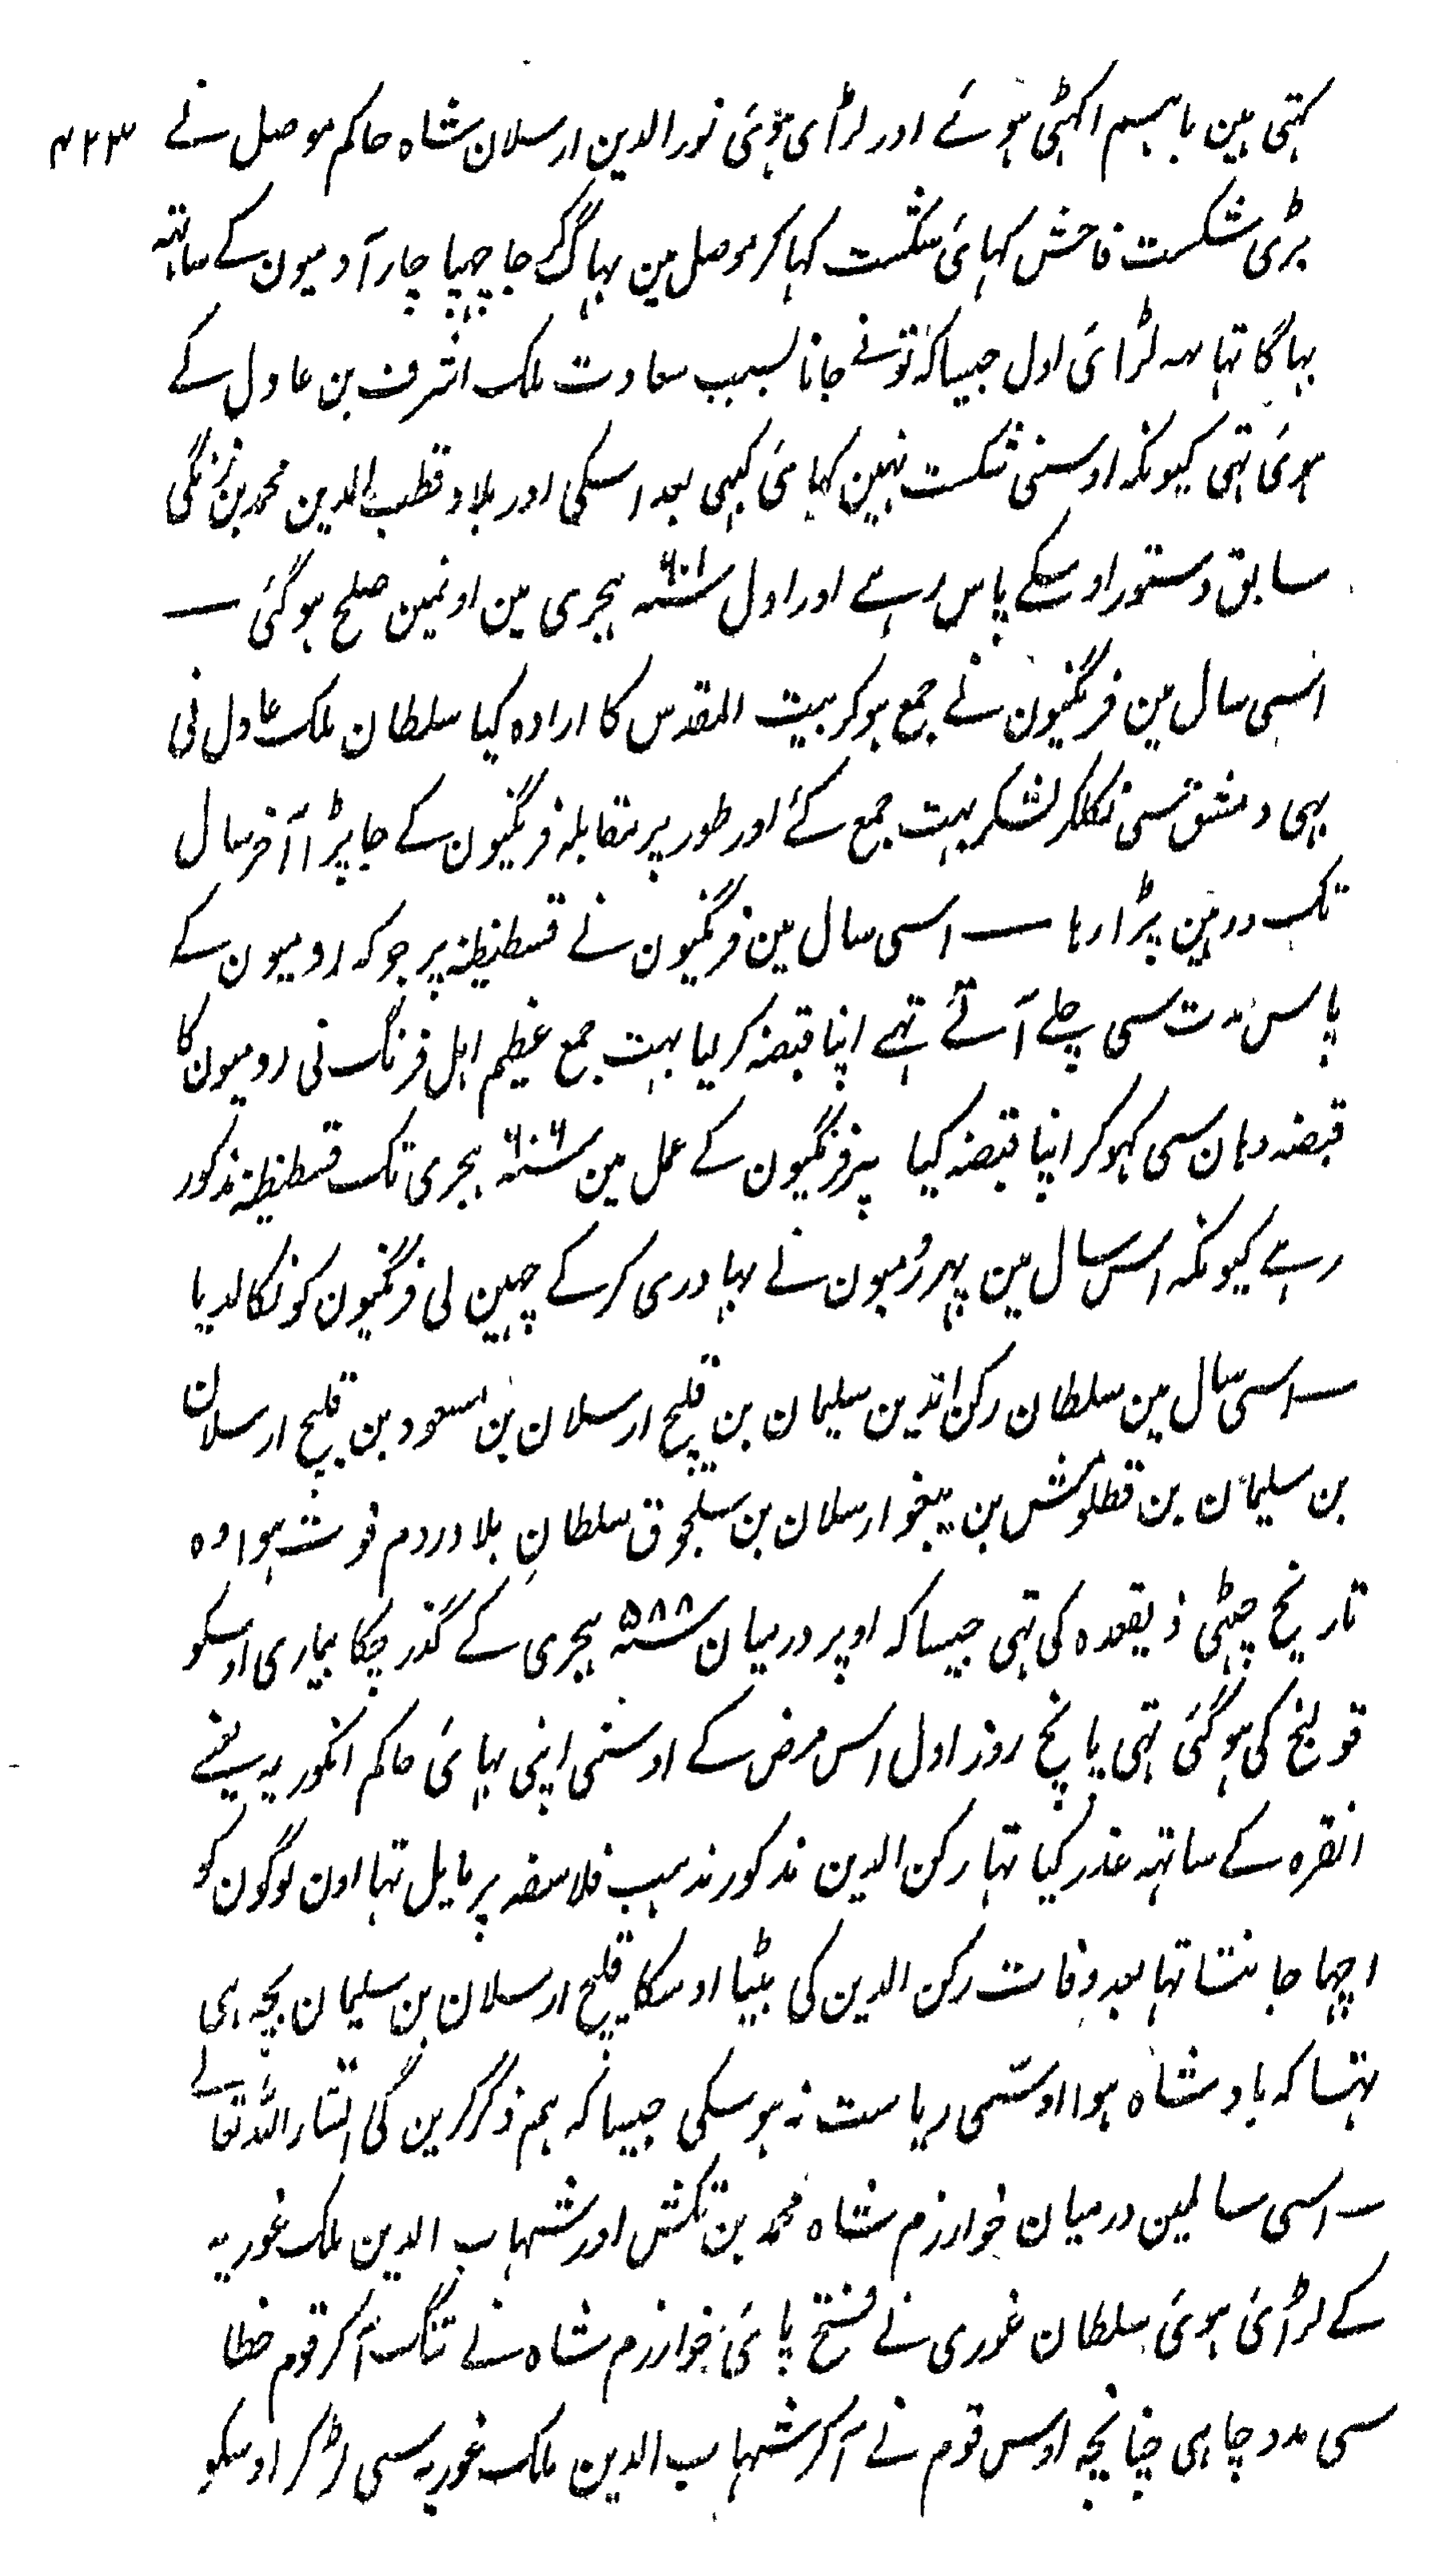 کہتی ہین باہم اکہٹی ہوئے اور لڑای ہوئی نور الدین ارسلان شاہ حاکم موصل نے ۴۲۳
بڑی شکست فاحش کہائی شکست کہا کر موصل مین بہاگ کر جا چہپا چار آدمیون کے ساتہہ
بہاگا تہا یہہ لڑائی اول جیساکہ تونے جانا بسبب سعادت ملک اشرف بن عادل کے
ہوئی تہی کیونکہ اوسنی شکست نہین کہائی کبہی بعد اسکی اور بلاد قطب الدین محمد بن زنگی
سابق دستور اوسکے پاس رہے اور اول سنہ ۶۰۱ ہجری مین اونمین صلح ہوگئی —
اسی سال مین فرنگیون نے جمع ہوکر بیت المقدس کا ارادہ کیا سلطان ملک عادل نی
بہی دمشق سی نکلکر لشکر بہت جمع کئے اور طور پر مقابلہ فرنگیون کے جا پڑا آخر سال
تک وہین پڑا رہا — اسی سال مین فرنگیون نے قسطنطنیہ پر جو کہ رومیون کے
پاس مدت سی چلے آتے تہے اپنا قبضہ کر لیا بہت جمع عظیم اہل فرنگ نی رومیون کا
قبضہ وہان سی کہو کر اپنا قبضہ کیا پر فرنگیون کے عمل مین سنہ ۶۰۶ ہجری تک قسطنطنیہ مذکور
رہے کیونکہ اس سال مین پہر رُمیون نے بہادری کرکے چہین لی فرنگیون کو نکالدیا
— اسی سال مین سلطان رکن الدین سلیمان بن قلیج ارسلان بن مسعود بن قلیج ارسلان
بن سلیمان بن قطلومش بن یبغو ارسلان بن سلجوق سلطانِ بلاد روم فوت ہوا وہ
تاریخ چہٹی ذیقعدہ کی تہی جیسا کہ اوپر درمیان سنہ ۵۸۸ ہجری کے گذر چکا بیماری اوسکو
قولنج کی ہوگئی تہی پانچ روز اول اس مرض کے اوسنی اپنی بہائی حاکم انکوریہ یعنے
انقرہ کے ساتہہ عذر کیا تہا رکن الدین مذکور مذہب فلاسفہ پر مایل تہا اون لوگون کو
اچہا جانتا تہا بعد وفات رکن الدین کی بیٹا اوسکا قلیج ارسلان بن سلیمان بچہ ہی
تہا کہ بادشاہ ہوا اوسّی ریاست نہ ہوسکی جیسا کہ ہم ذکر کرین گی انشاء اللہ تعالے
— اسی سالمین درمیان خوارزم شاہ محمد بن تکش اور شہاب الدین ملک غوریہ
کے لڑائی ہوئی سلطان غوری نے فتح پائی خوارزم شاہ نے تنگ آکر قوم خطا
سی مدد چاہی چنانچہ اوس قوم نے آکر شہاب الدین ملک غوریہ سی لڑ کر اوسکو